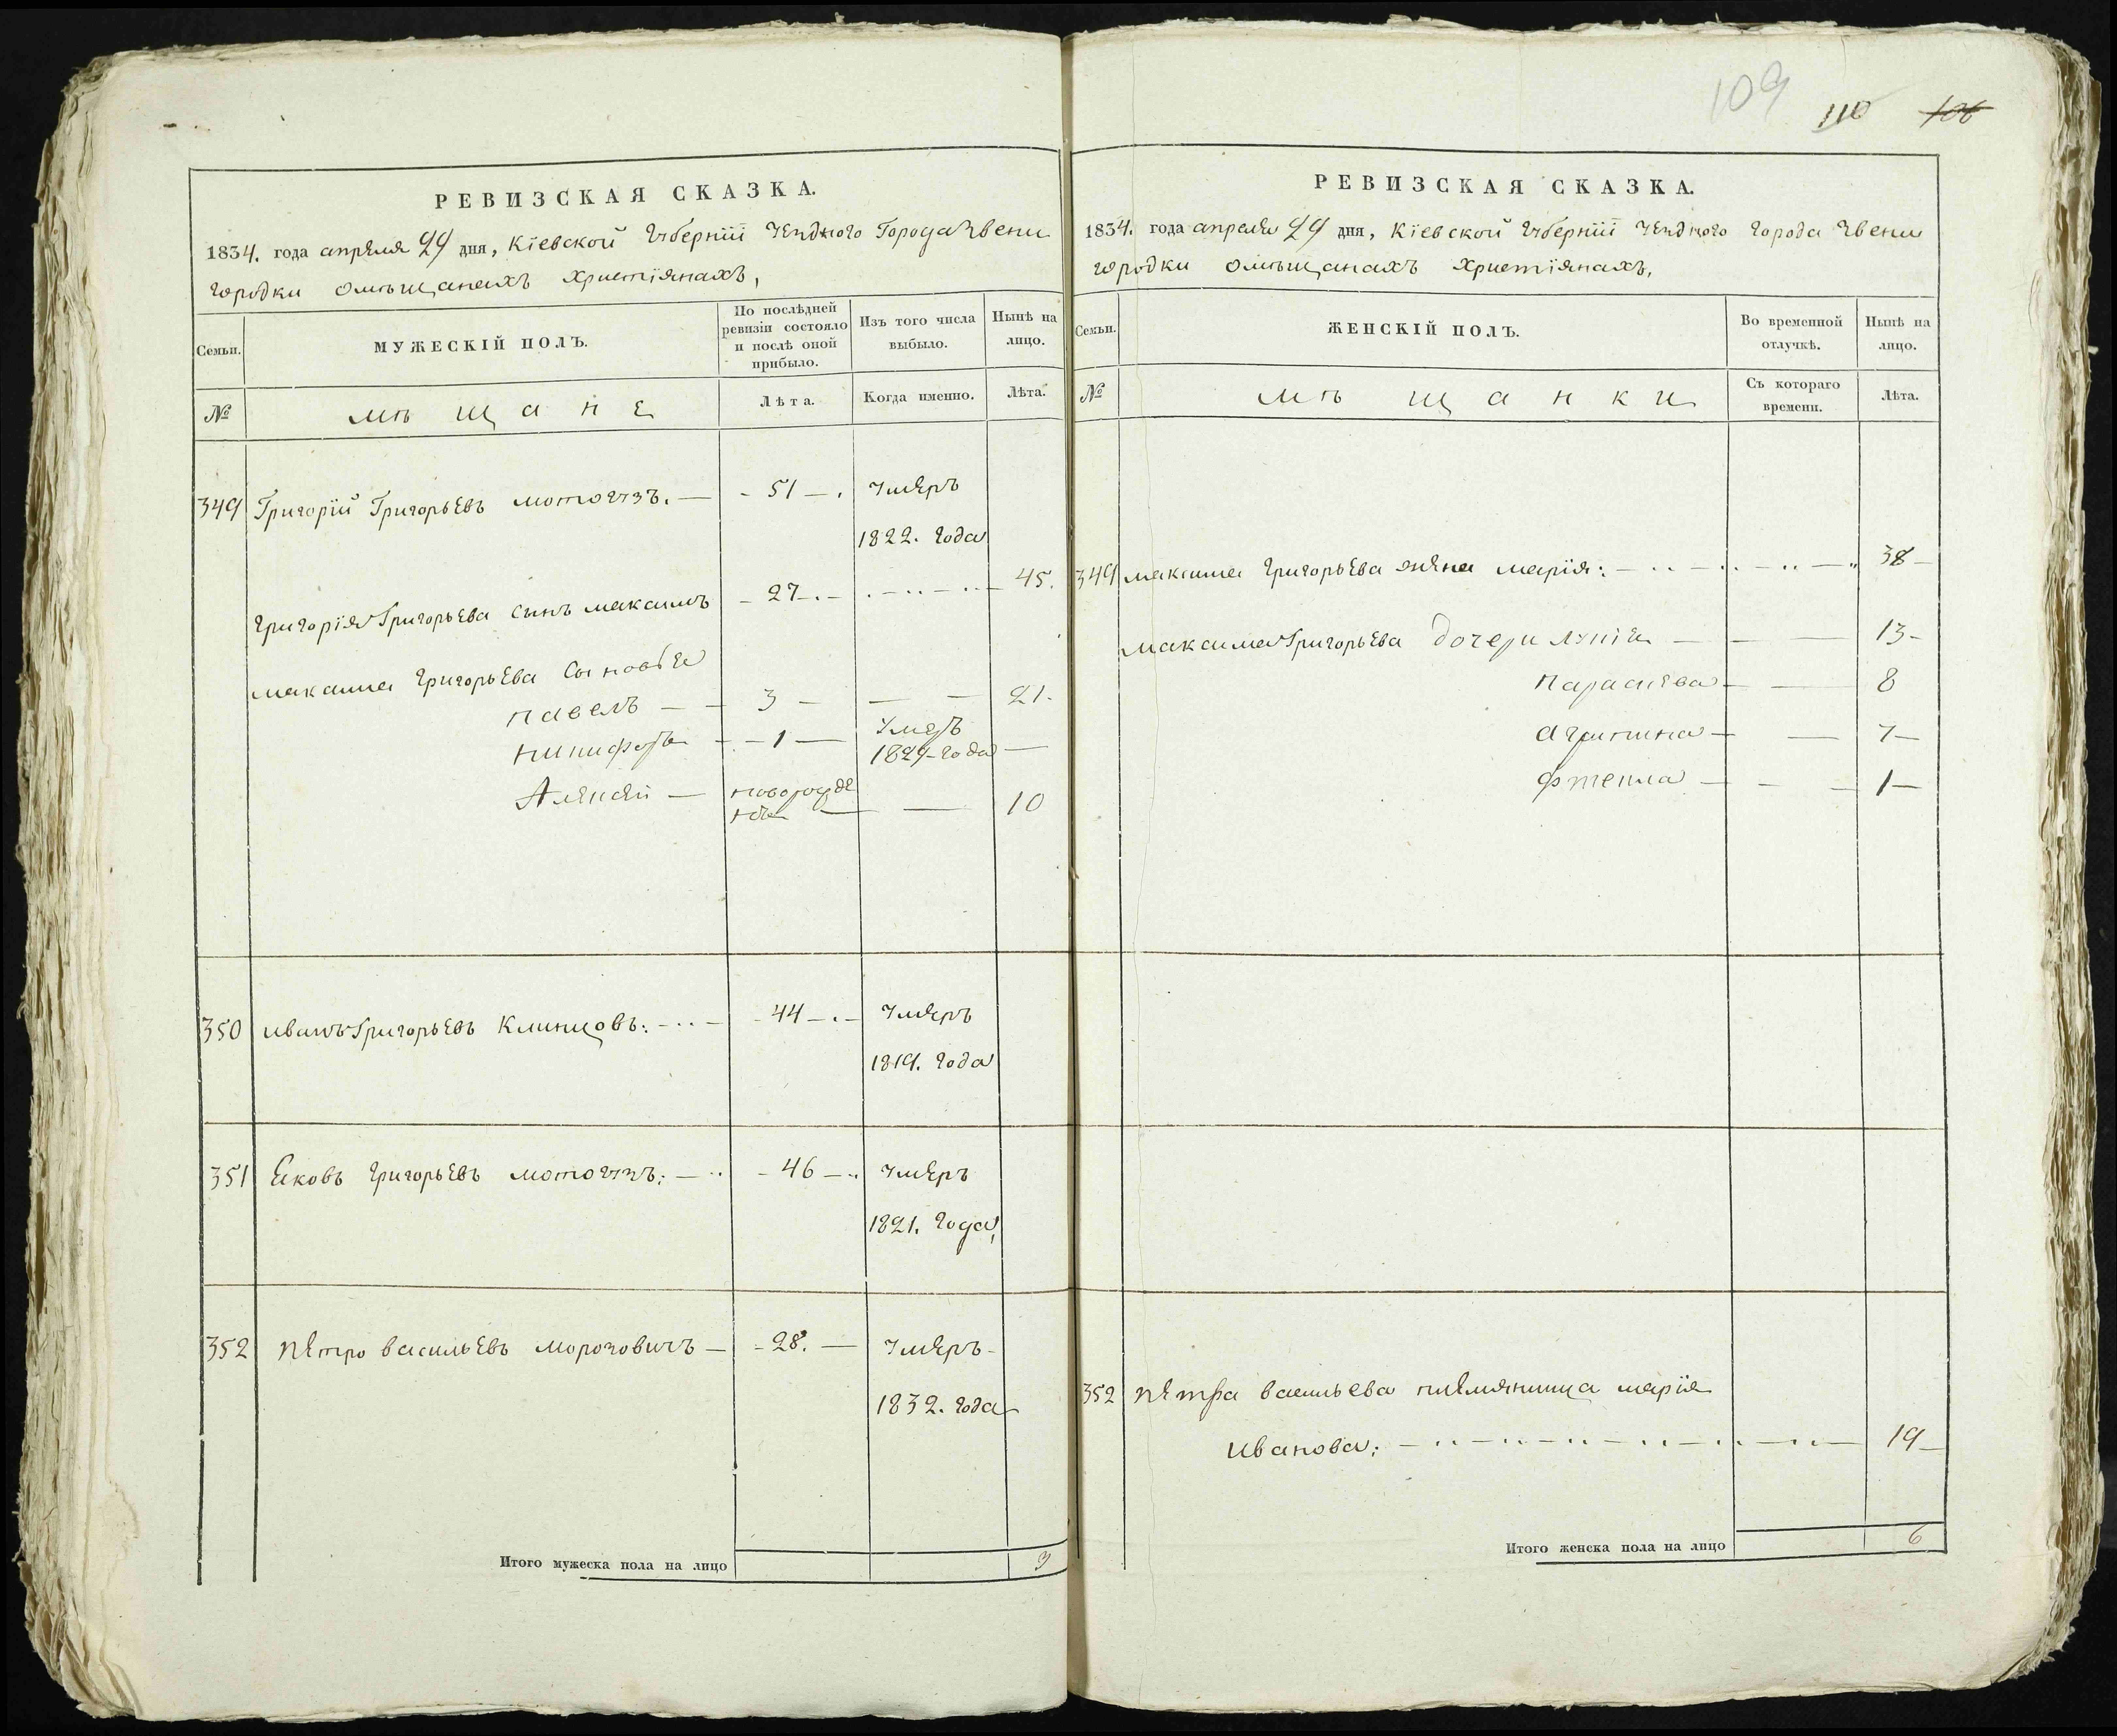 109 110 106
РЕВИЗСКАЯ СКАЗКА.
1834. года апреля 29 дня, Кіевской Губерніи Уезднаго Города Звени
городки омѣщанахъ христіянахъ,
Семьи.
МУЖЕСКІЙ ПОЛЪ.
По послѣдней
ревизіи состояло
и послѣ оной
прибыло.
Изъ того числа
выбыло.
Нынѣ на
лицо.
№
мѣщане
Лѣта.
Когда именно.
Лѣта.
349 Григорій Григорьевъ мотогузъ. — 51 — умеръ
1822. года
григорія Григорьева сынъ максимъ — 27 — 45.
максима григорьева сыновья
павелъ — 3 — 21.
никифоръ — 1 — умеръ
1829 года
Алексей — новорожде
нъ — 10
350 иванъ Григорьевъ Климцовъ: — 44 — умеръ
1819. года
351 Яковъ григорьевъ мотогузъ: — 46 — умеръ
1821. года,
352 петро васильевъ морозовичъ — 28. — умеръ
1832. года
Итого мужеска пола на лицо 3
РЕВИЗСКАЯ СКАЗКА.
1834. года апреля 29 дня, Кіевской Губерніи Уезднаго города Звени
городки омѣщанахъ христіянахъ,
Семьи.
ЖЕНСКІЙ ПОЛЪ.
Во временной
отлучкѣ.
Нынѣ на
лицо.
№
мѣщанки
Съ котораго
времени.
Лѣта.
349 максима григорьева жена марія: — 38 —
максима Григорьева дочери лукія — 13 —
параскева — 8
агрипина — 7 —
фтекла — 1 —
352 петра васильева племянница марія
иванова: — 19 —
Итого женска пола на лицо 6